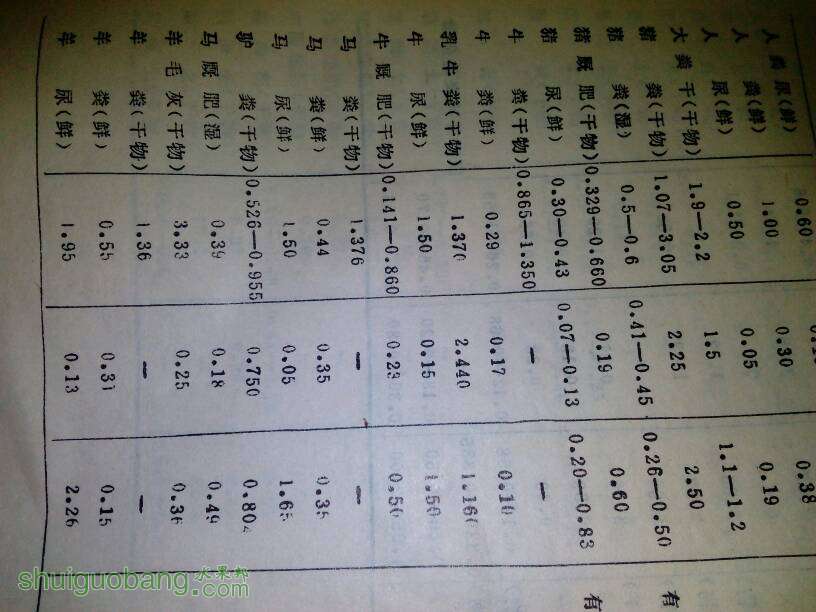 人粪尿(鲜) 0.60
人粪(鲜) 1.00 0.30 0.38
人尿(鲜) 0.50 0.05 0.19
大粪干(干物) 1.9—2.2 1.5 1.1—1.2
猪粪(干物) 1.07—3.05 2.25 2.50
猪粪(湿) 0.5—0.6 0.41—0.45 0.26—0.50 有
猪厩肥(干物) 0.329—0.660 0.19 0.60
猪尿(鲜) 0.30—0.43 0.07—0.13 0.20—0.83 有
牛粪(干物) 0.865—1.350 — —
牛粪(鲜) 0.29 0.17 0.10
乳牛粪(干物) 1.370 2.440 1.160
牛尿(鲜) 1.50 0.15 1.50
牛厩肥(干物) 0.141—0.860 0.23 0.50
马粪(干物) 1.376 — —
马粪(鲜) 0.44 0.35 0.35
马尿(鲜) 1.50 0.05 1.65
驴粪(干物) 0.526—0.955 0.750 0.804
马厩肥(湿) 0.39 0.18 0.49
羊毛灰(干物) 3.33 0.25 0.36
羊粪(干物) 1.36 — —
羊粪(鲜) 0.55 0.31 0.15
羊尿(鲜) 1.95 0.13 2.26
shuiguobang.com 水果邦